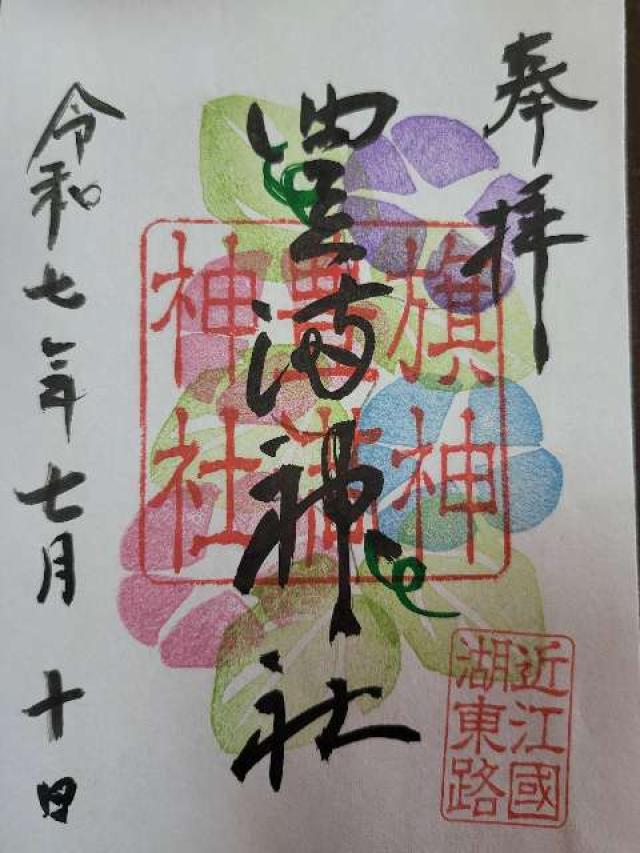 奉拝
豊満神社
旗神
豊満
神社
近江國
湖東路
令和七年七月十日